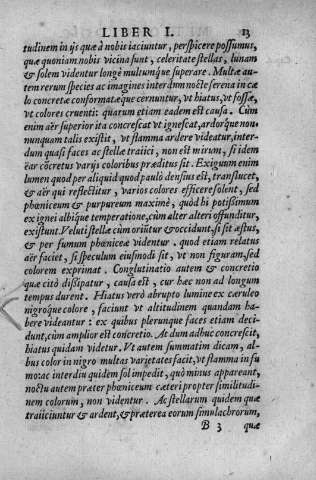 LIBER I. 13
tudinem in ijs quæ à nobis iaciuntur, perspicere possumus,
quæ quoniam nobis vicina sunt, celeritate stellas, lunam
& solem videntur longè multumque superare. Multæ au-
tem rerum species ac imagines interdum nocte serena in cæ
lo concretæ conformatæque cernuntur, vt hiatus, vt fossæ,
vt colores cruenti: quarum etiam eadem est causa. Cùm
enim aër superior ita concrescat vt ignescat, ardorque non-
nunquam talis existit, vt flamma ardere videatur, inter-
dum quasi faces ac stellæ traiici, non est mirum, si idem
aër cōcretus varijs coloribus præditus sit. Exiguum enim
lumen quod per aliquid quod paulò densius est, translucet,
& aër qui reflectitur, varios colores efficere solent, sed
phœniceum & purpureum maximè, quòd hi potissimùm
ex ignei albique temperatione, cùm alter alteri offunditur,
existunt. Veluti stellæ cùm oriūtur & occidunt, si sit æstus,
& per fumum phœniceæ videntur. quod etiam relatus
aër faciet, si speculum eiusmodi sit, vt non figuram, sed
colorem exprimat. Conglutinatio autem & concretio
quæ citò dissipatur, causa est, cur hæc non ad longum
tempus durent. Hiatus verò abrupto lumine ex cæruleo
nigroque colore, faciunt vt altitudinem quandam ha-
bere videantur: ex quibus plerunque faces etiam deci-
dunt, cùm amplior est concretio. At dum adhuc concrescit,
hiatus quidam videtur. Vt autem summatim dicam, al-
bus color in nigro multas varietates facit, vt flamma in fu
mo: ac interdiu quidem sol impedit, quò minus appareant,
noctu autem præter phœniceum cæteri propter similitudi-
nem colorum, non videntur. Ac stellarum quidem quæ
traiiciuntur & ardent, & præterea eorum simulachrorum,
B 3 quæ